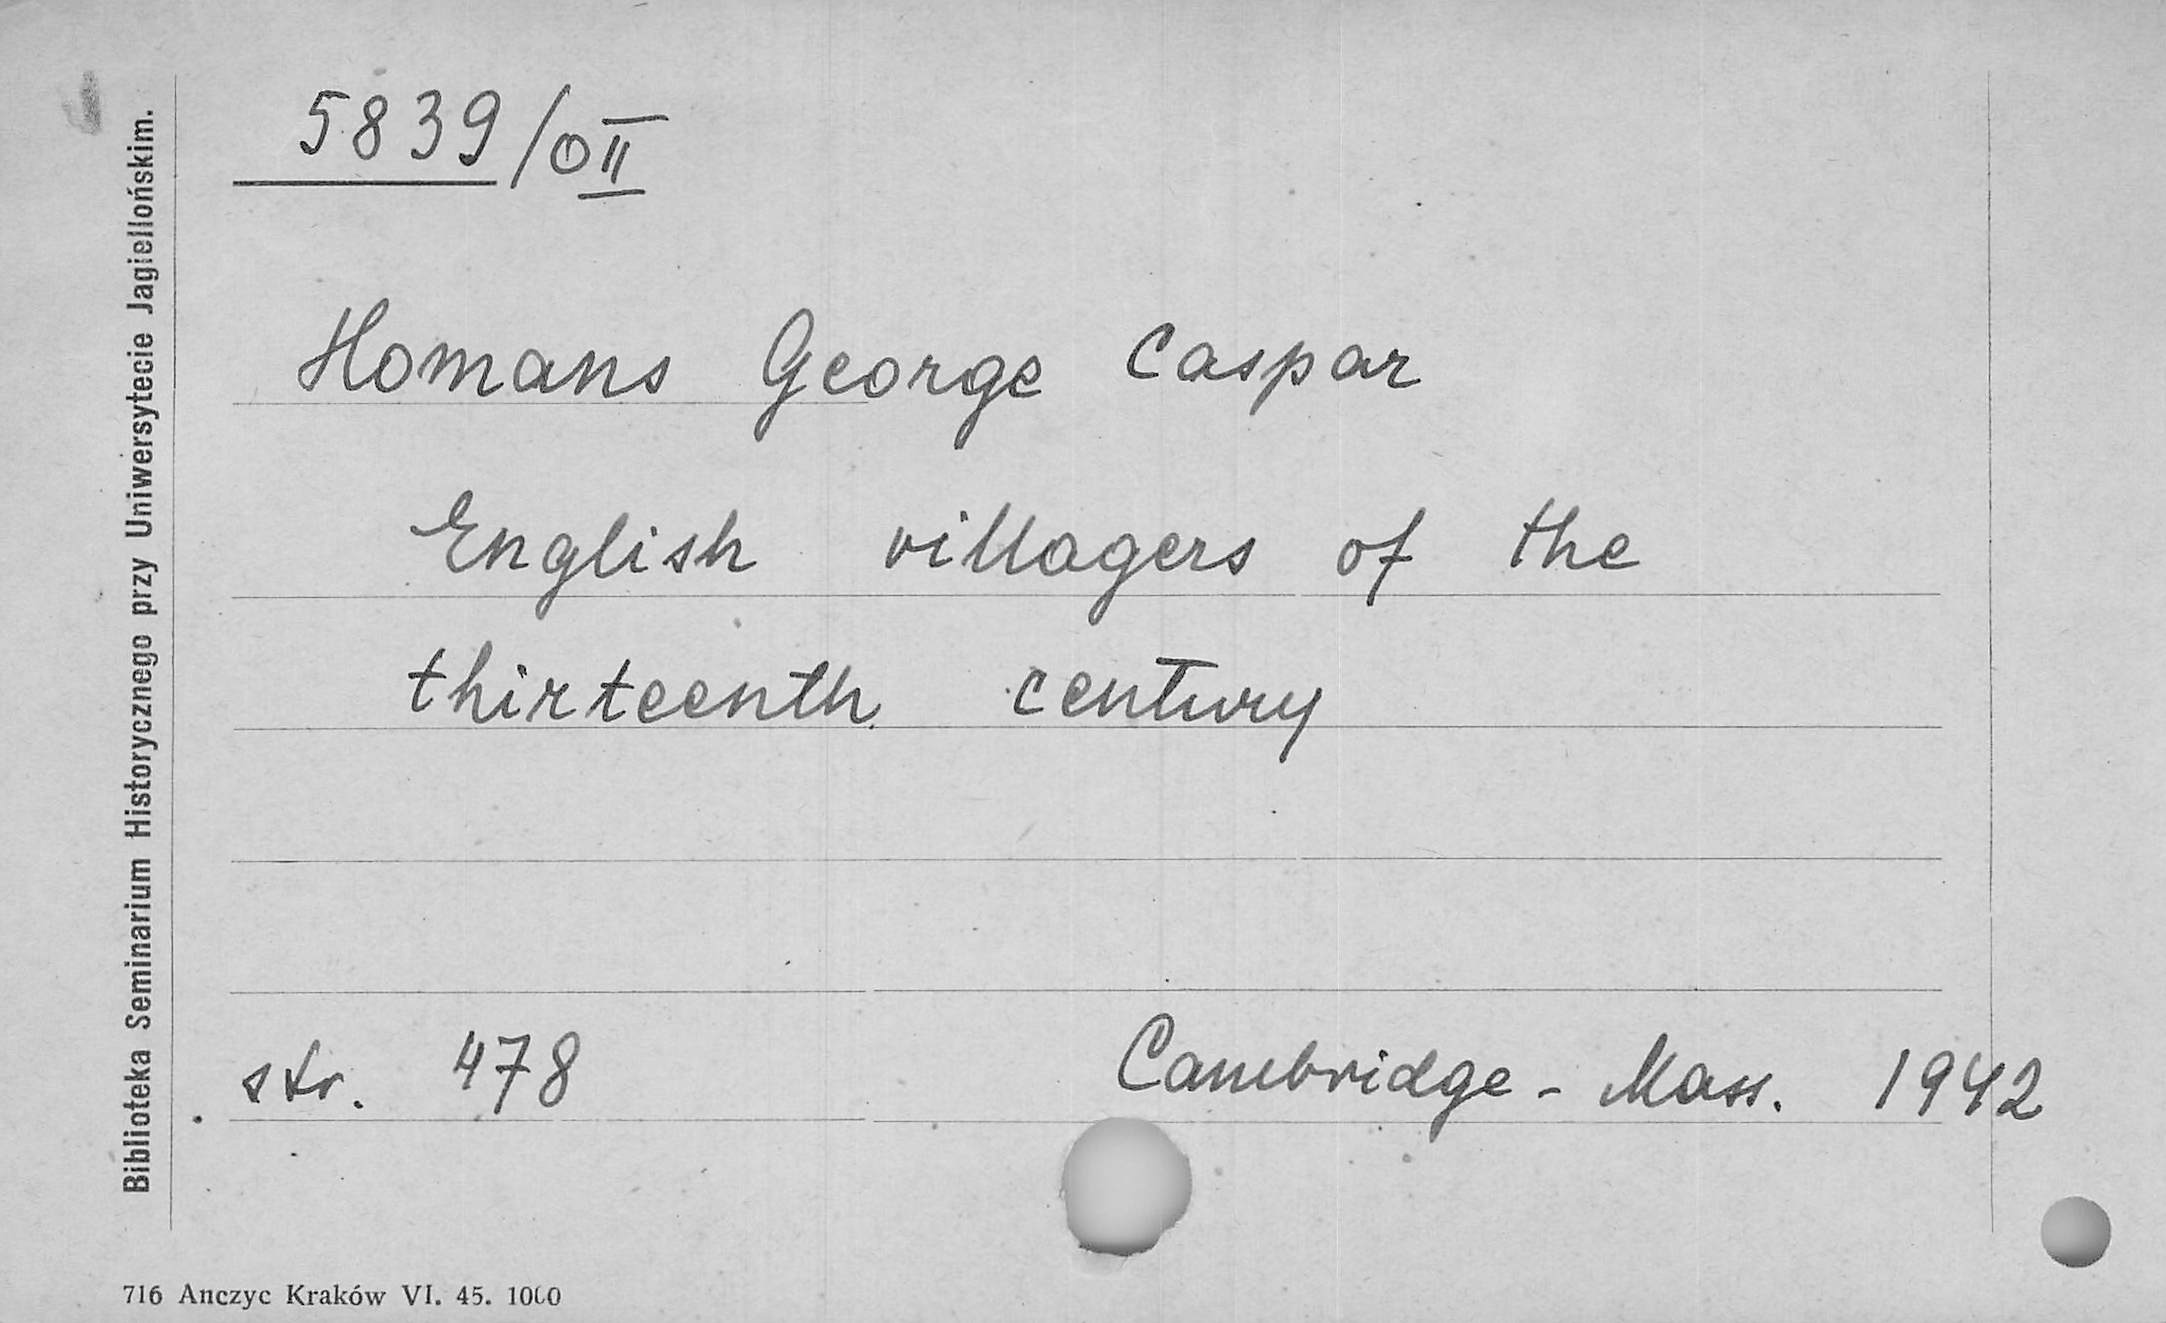 5839/OII
Homans George Caspar
English villagers of the
thirteenth century
str. 478 Cambridge - Mass. 1942
Biblioteka Seminarium Historycznego przy Uniwersytecie Jagiellońskim.
716 Anczyc Kraków VI. 45. 1000